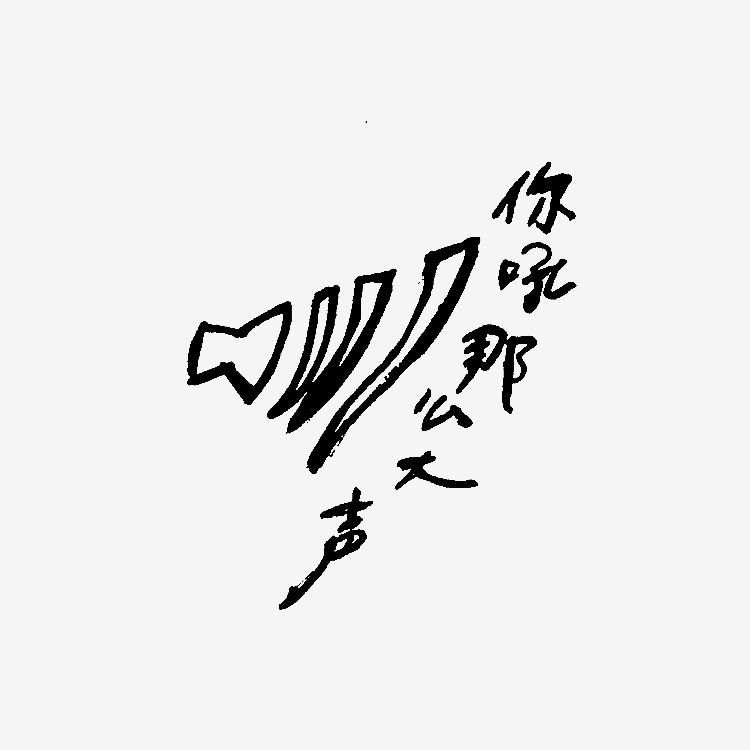 你吼那么大声